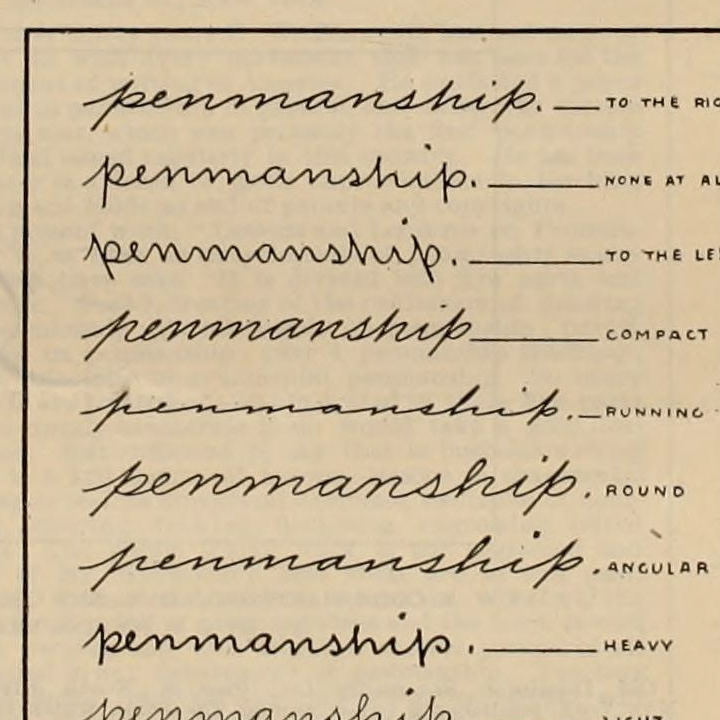 penmanship. TO THE RIG
penmanship. NONE AT AL
penmanship. TO THE LE
penmanship COMPACT
penmanship. RUNNING
penmanship. ROUND
penmanship. ANGULAR
penmanship. HEAVY
penmanship LIGHT